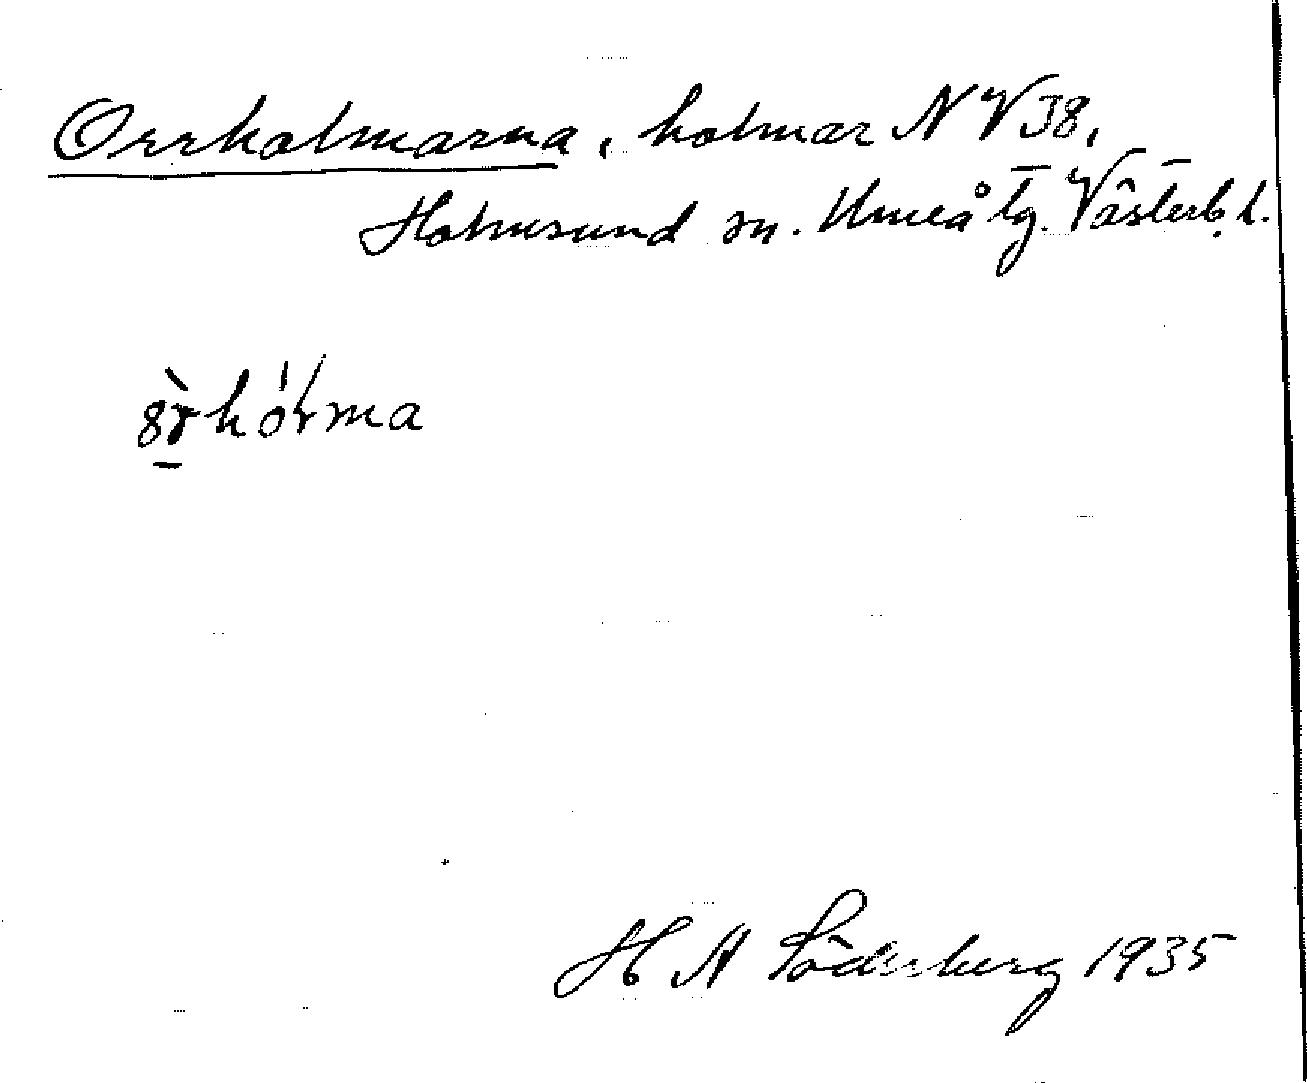 Orrholmarna, holmar N V 38,
Holmsund sn. Umeå tg. Västerb. l.
H A Söderberg 1935